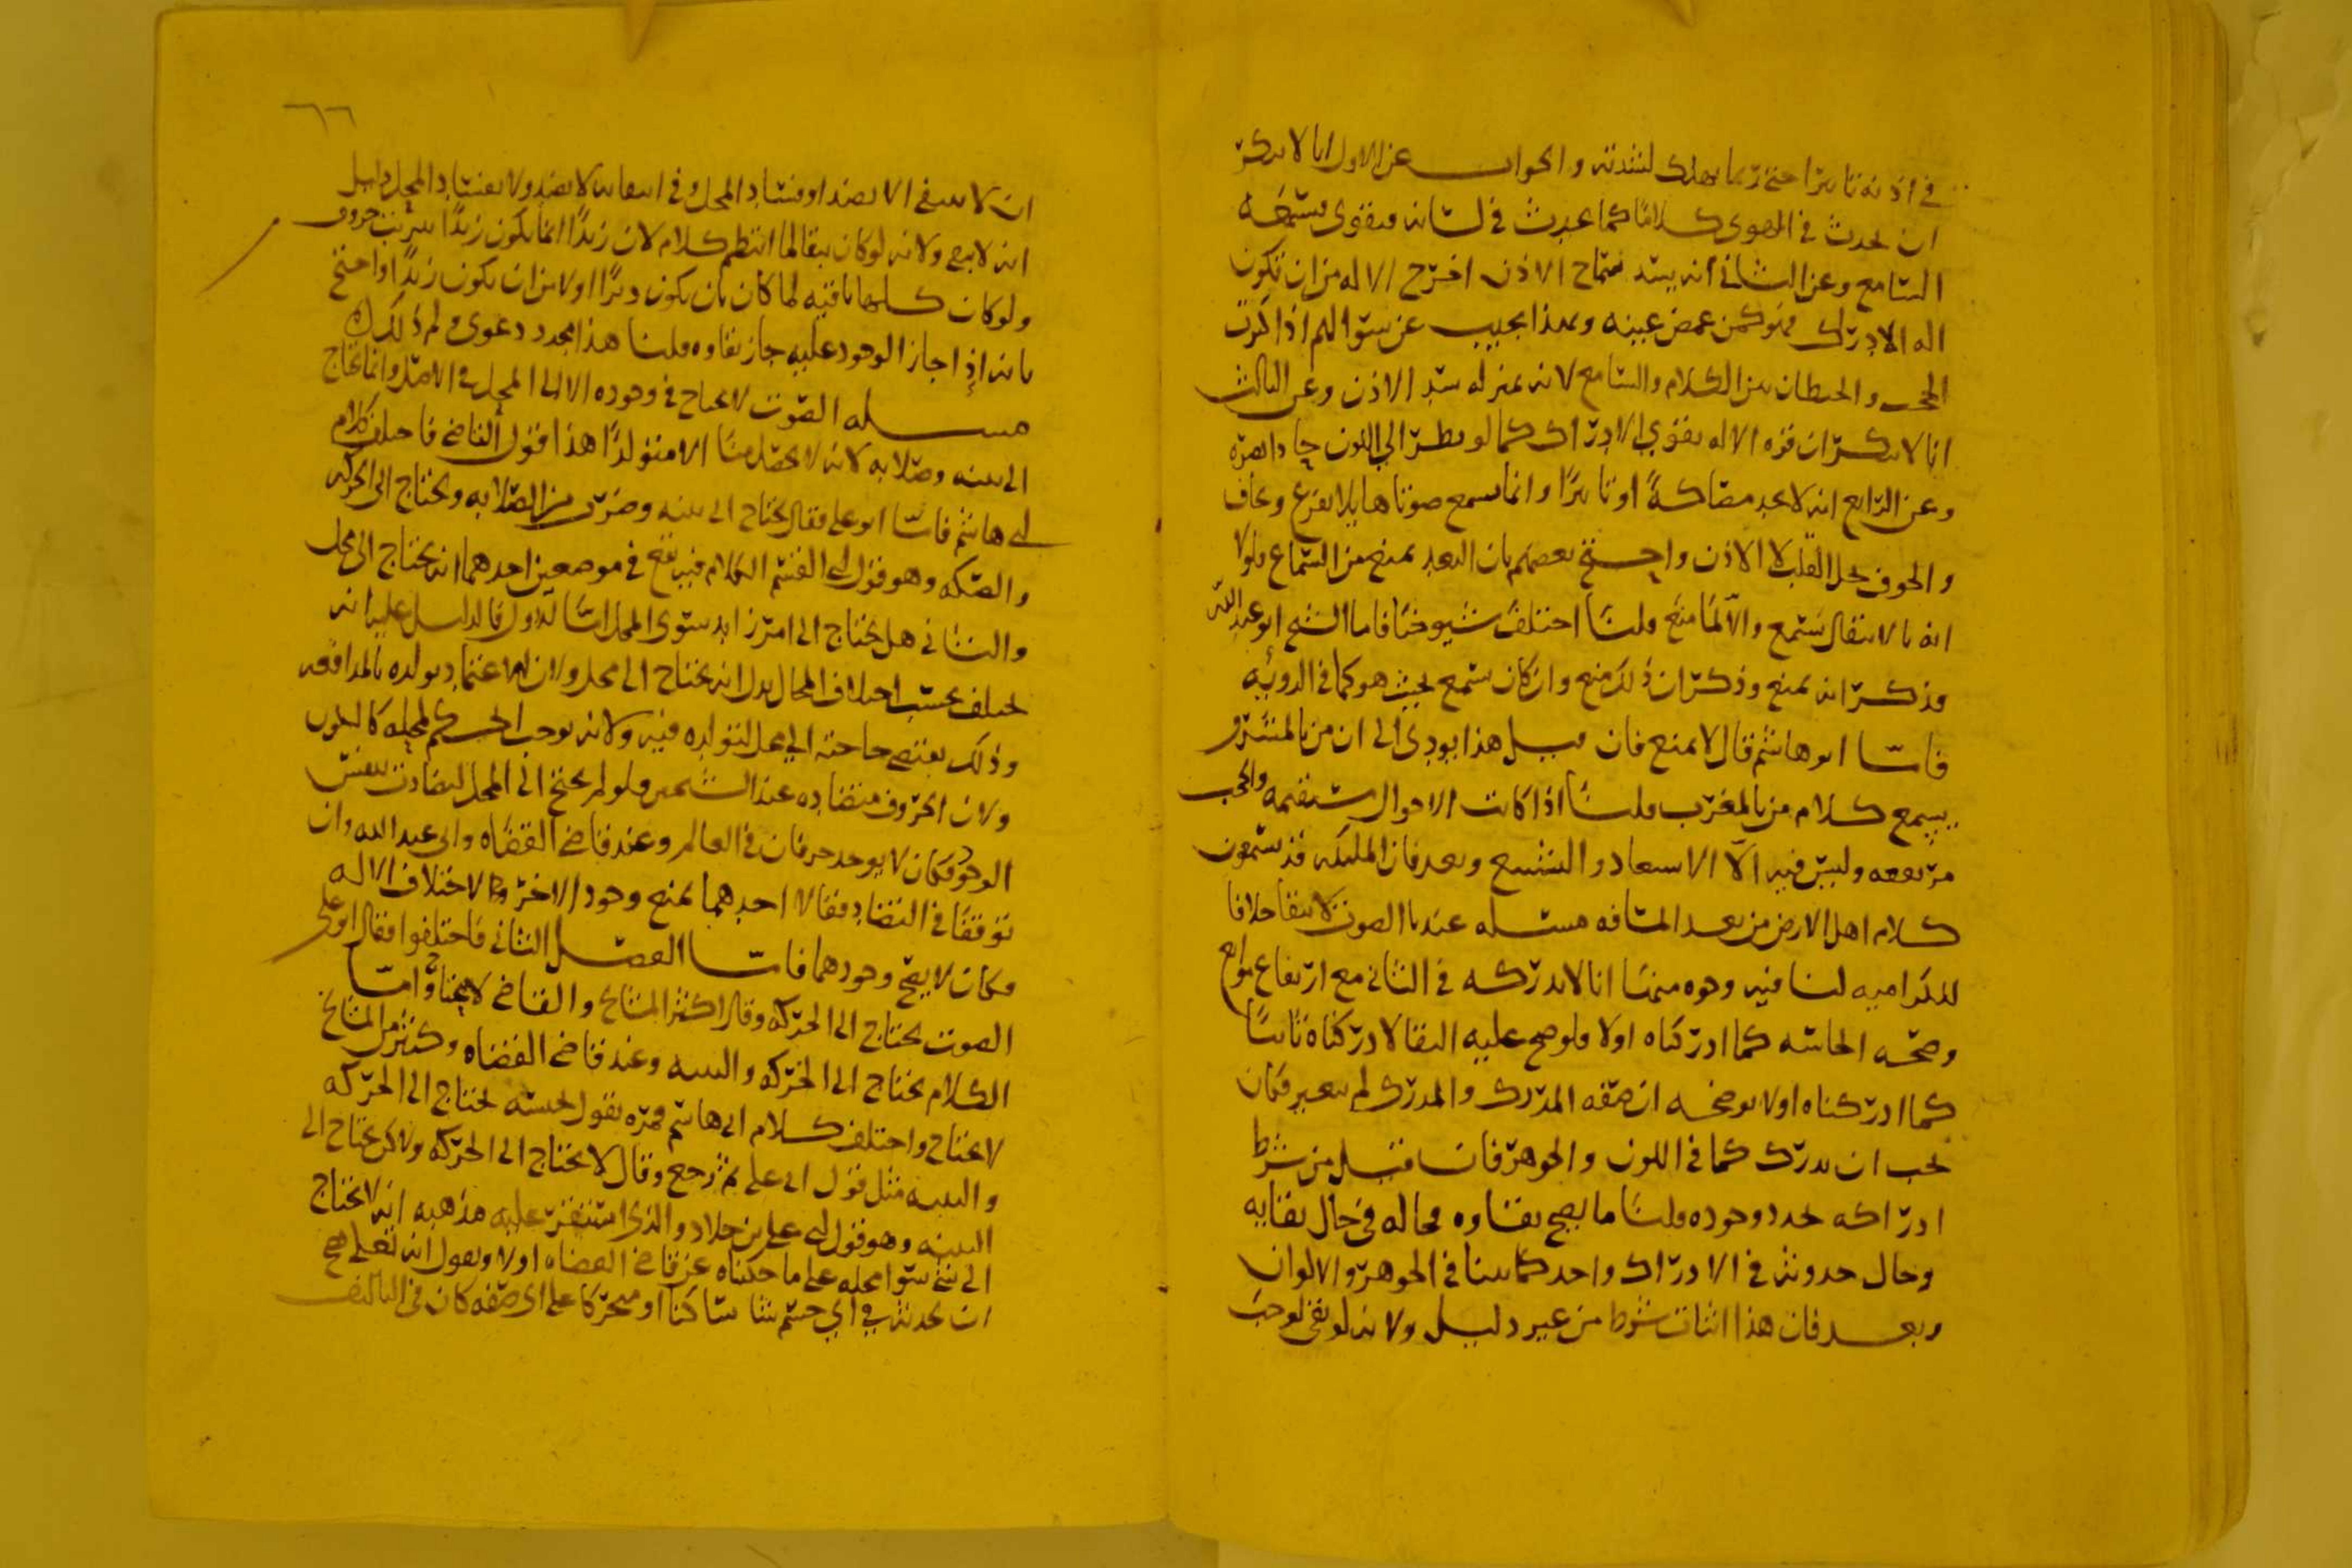 في اذنه تاثيرا حتى ربما يهلك لشدته والجواب عن الاول انا لا ننكر
ان يحدث في الهوى كلاما كما يحدث في لسانه فيقوى فيسمعه
السامع وعن الثاني انه يسد سماخ الاذن اخرج الاله من ان تكون
اله الادراك فهو كمن غمض عينيه وبهذا يجيب عن سوالهم اذا كرت
الحجب والحيطان بين الكلام والسامع لانه بمنزله سد الاذن وعن الثالث
انا لا ننكر ان قوه الاله يقوي الادراك كما لو نظر الى اللون حاد البصره
وعن الرابع انه لا يجد مصاكة او تاثيرا وانما يسمع صوتا هايلا يفزع ويخاف
والخوف يحل القلب لا الاذن واحتج بعضهم بان البعد يمنع من السماع فلولا
انه بالانتقال يسمع والا لما منع قلنا اختلف شيوخنا فاما الشيخ ابو عبدالله
فذكر انه يمنع وذكر ان ذلك منع وان كان يسمع بحيث هو كما في الرويه
فاما ابو هاشم قال لا يمنع فان قيل هذا يودي الى ان من بالمشرق
يسمع كلام من بالمغرب قلنا اذا كانت الاحوال مستقيمه والحجب
مرتفعه وليس فيه الا الاستبعاد والتشنيع وبعد فان المليكه قد يسمعون
كلام اهل الارض من بعد المسافه مسله عندنا الصوت لا يبقا خلافا
للكراميه لنا فيه وجوه منها انا لا ندركه في الثاني مع ارتفاع موانع
وصحه الحاسه كما ادركناه اولا فلو صح عليه البقا لادركناه ثانيا
كما ادركناه اولا يوضحه ان صفه المدرك والمدرك لم يتغير فكان
يجب ان يدرك كما في اللون والجوهر فان قيل من شرط
ادراكه تجدد وجوده قلنا ما يصح بقاوه فحاله في حال بقايه
وحال حدوثه في الادراك واحد كما بينا في الجوهر والالوان
وبعد فان هذا اثبات شرط من غير دليل ولانه لو بقي لوجب
٦٦
ان لا ينتفي الا بضد او فساد المحل وفي انتفايه لا بضد ولا بفساد المحل دليل
انه لا يبقى ولانه لو كان يبقا لما انتظم كلام لان زيدا انما يكون زيدا بترتيب حروف
ولو كانت كلها باقيه لما كان بان يكون ديزا اولا من ان يكون زيدا واحتج
بانه اذا جاز الوجود عليه جاز بقاوه قلنا هذا مجرد دعوى ولم ذلك
مسله الصوت لا يحتاج في وجوده الا الى المحل في الاصل وانما يحتاج
الى بنيه وصلابه لانه لا يحصل منا الا متولدا هذا قول القاضي فاختلف كلام
ابي هاشم فاما ابو علي فقال يحتاج الى بنيه وضرب من الصلابه ويحتاج الى الحركه
والصكه وهو قول ابي القسم الكلام فيه يقع في موضعين احدهما انه يحتاج الى محل
والثاني هل يحتاج الى امر زايد سوى المحل اما الاول فالدليل عليه انه
يختلف بحسب اختلاف المحال يدل انه يحتاج الى محل ولان الاعتماد يولده بالمدافعه
وذلك يقتضي حاجته الى محل لتولده فيه ولانه يوجب الحكم لمحله كاللون
ولان الحروف متضاده عند الشيخين فلو لم يحتج الى المحل لتضادت بنفس
الوجود فكان لا يوجد حرفان في العالم وعند قاضي القضاه وابي عبد الله وان
توقفا في التضاد فقالا احدهما يمنع وجود الاخر لاختلاف الاله
فكان لا يصح وجودهما فاما الفصل الثاني فاختلفوا فقال ابو علي
الصوت يحتاج الى الحركه وقال اكثر المشايخ والقاضي لا يحتاج واما
الكلام يحتاج الى الحركه والبنيه وعند قاضي القضاه وكثير من المشايخ
لا يحتاج واختلف كلام ابي هاشم فمره يقول بجنسه يحتاج الى الحركه
والبنيه مثل قول ابي علي ثم رجع وقال لا يحتاج الى الحركه ولاكن يحتاج الى
البنيه وهو قول ابي علي بن خلاد والذي استقر عليه مذهبه انه لا يحتاج
الى شي سوا محله على ما حكيناه عن قاضي القضاه اولا ويقول انه تعلى يصح
ان يحدثه في اي جسم شا ساكنا او متحركا على اي صفه كان في التاليف